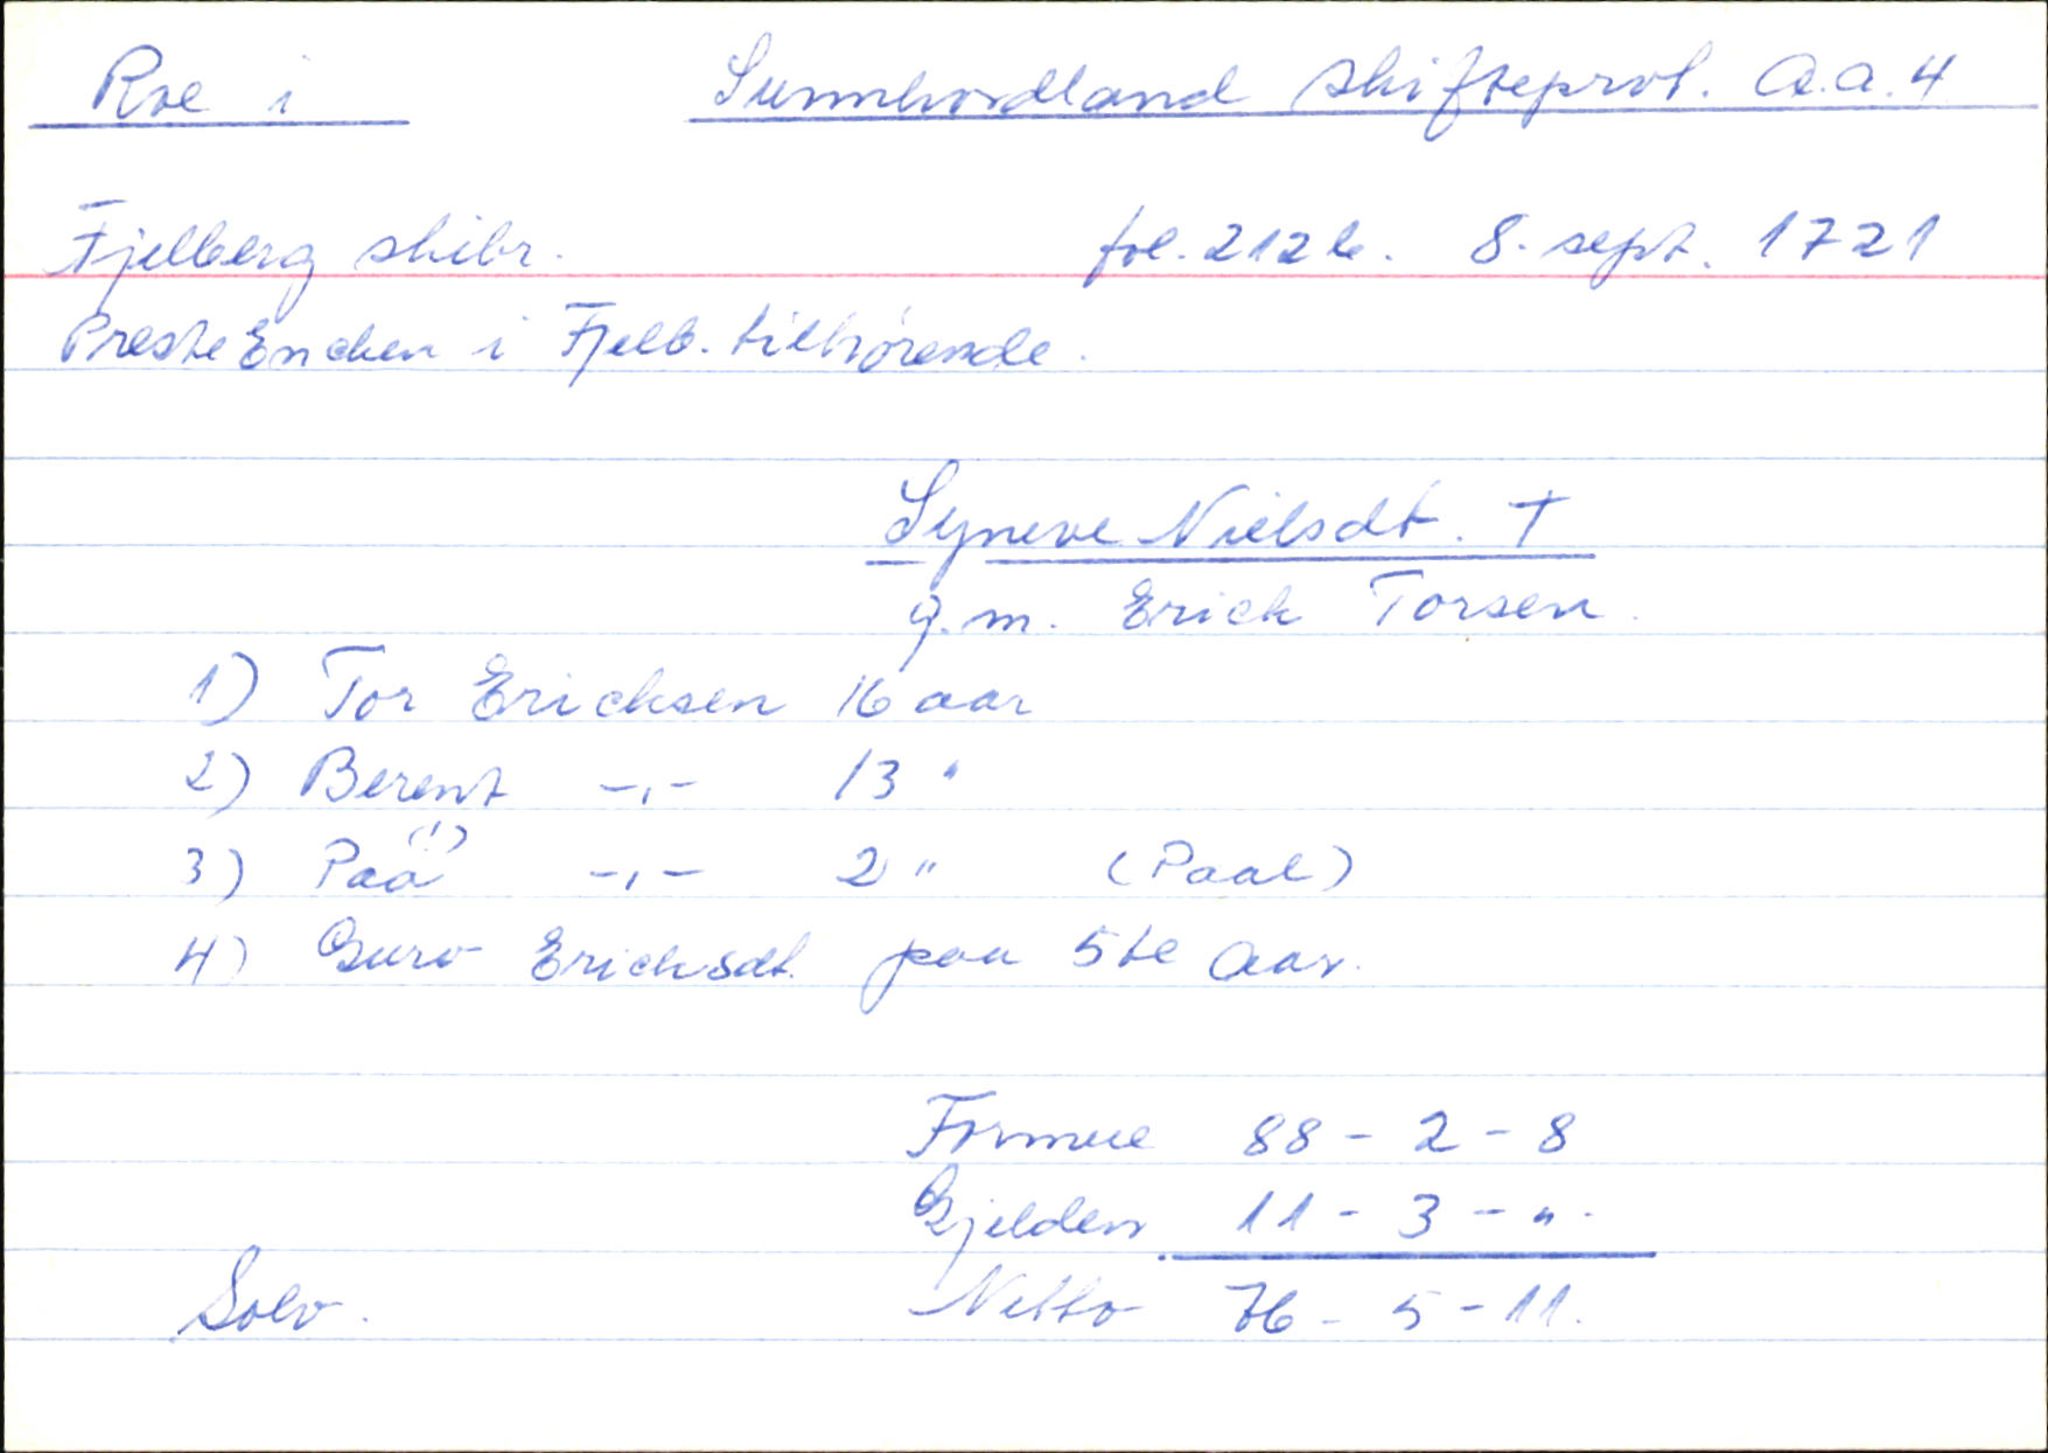 Roe i Sunnhordland skifteprot. A.a.4
Fjelberg skibr. fol. 212 b. 8. sept. 1721
Preste Encken i Fjelb. tilhørende.
Syneve Nielsdt. †
g.m. Erich Torsen.
1) Tor Ericksen 16 aar
2) Berent -,- 13 "
3) Paa (!) -,- 2 " (Paal)
4) Guro Erichsdt. paa 5te Aar.
Formue 88 - 2 - 8
Gjelden 11 - 3 - " .
Solv. Netto 76 - 5 - 11.